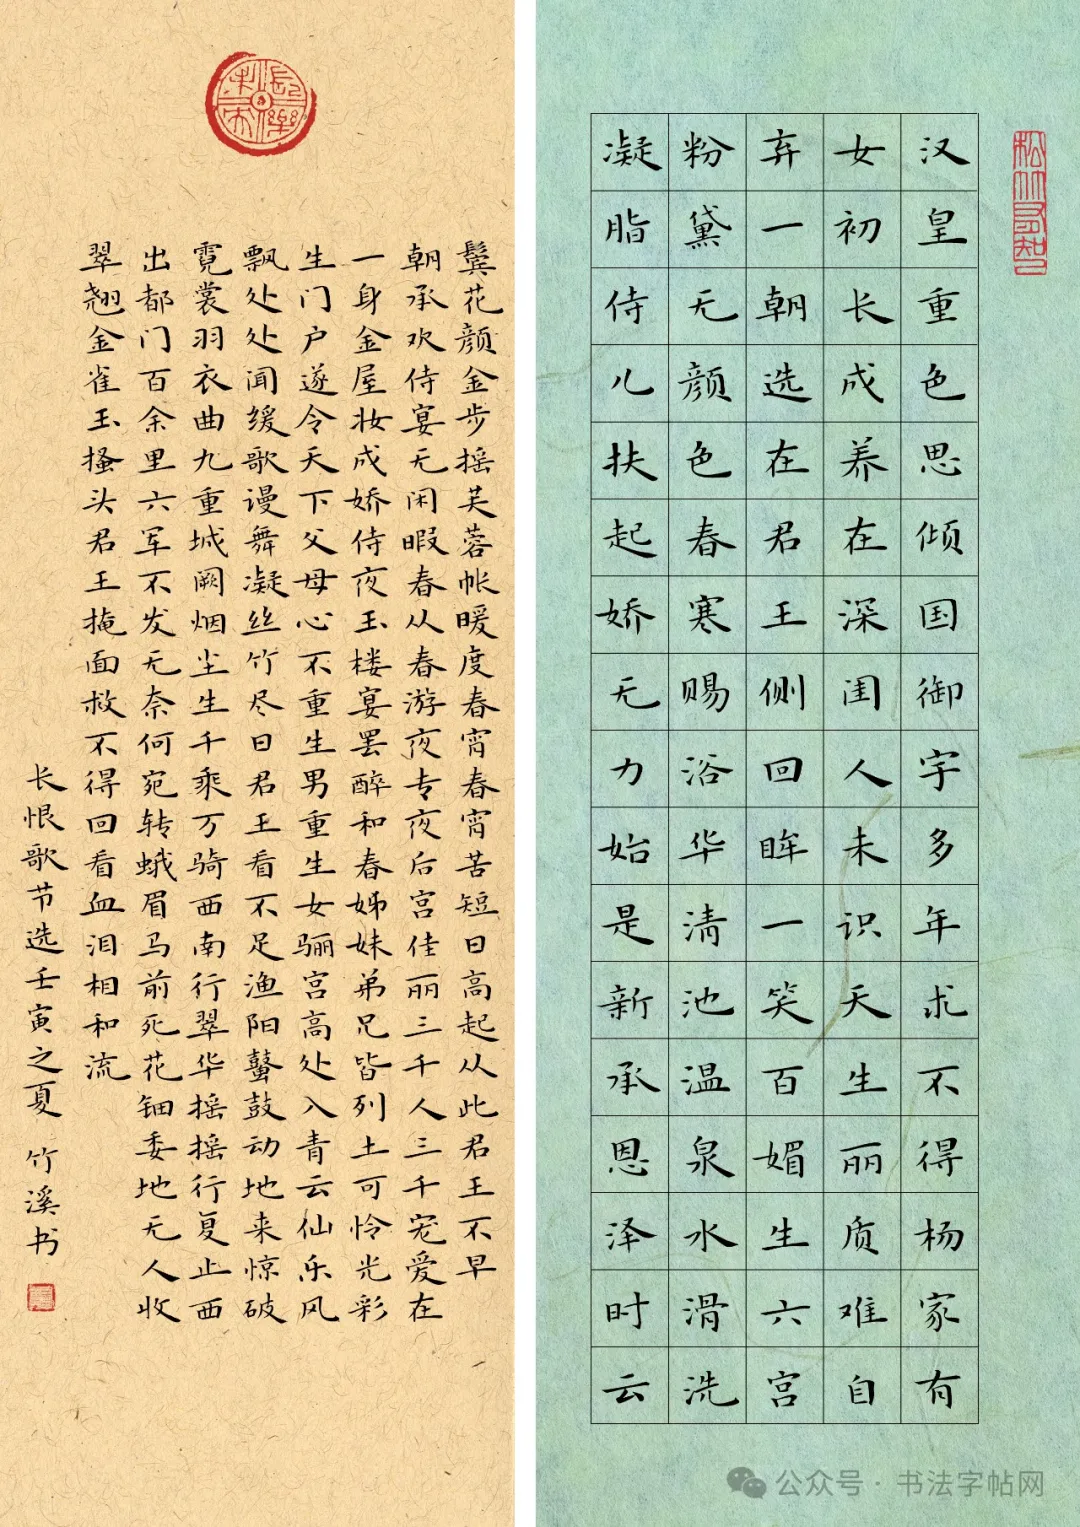 汉皇重色思倾国御宇多年求不得杨家有
女初长成养在深闺人未识天生丽质难自
弃一朝选在君王侧回眸一笑百媚生六宫
粉黛无颜色春寒赐浴华清池温泉水滑洗
凝脂侍儿扶起娇无力始是新承恩泽时云
鬓花颜金步摇芙蓉帐暖度春宵春宵苦短日高起从此君王不早
朝承欢侍宴无闲暇春从春游夜专夜后宫佳丽三千人三千宠爱在
一身金屋妆成娇侍夜玉楼宴罢醉和春姊妹弟兄皆列土可怜光彩
生门户遂令天下父母心不重生男重生女骊宫高处入青云仙乐风
飘处处闻缓歌谩舞凝丝竹尽日君王看不足渔阳鼙鼓动地来惊破
霓裳羽衣曲九重城阙烟尘生千乘万骑西南行翠华摇摇行复止西
出都门百余里六军不发无奈何宛转蛾眉马前死花钿委地无人收
翠翘金雀玉搔头君王掩面救不得回看血泪相和流
长恨歌节选壬寅之夏 竹溪书
長樂未央
公众号 · 书法字帖网